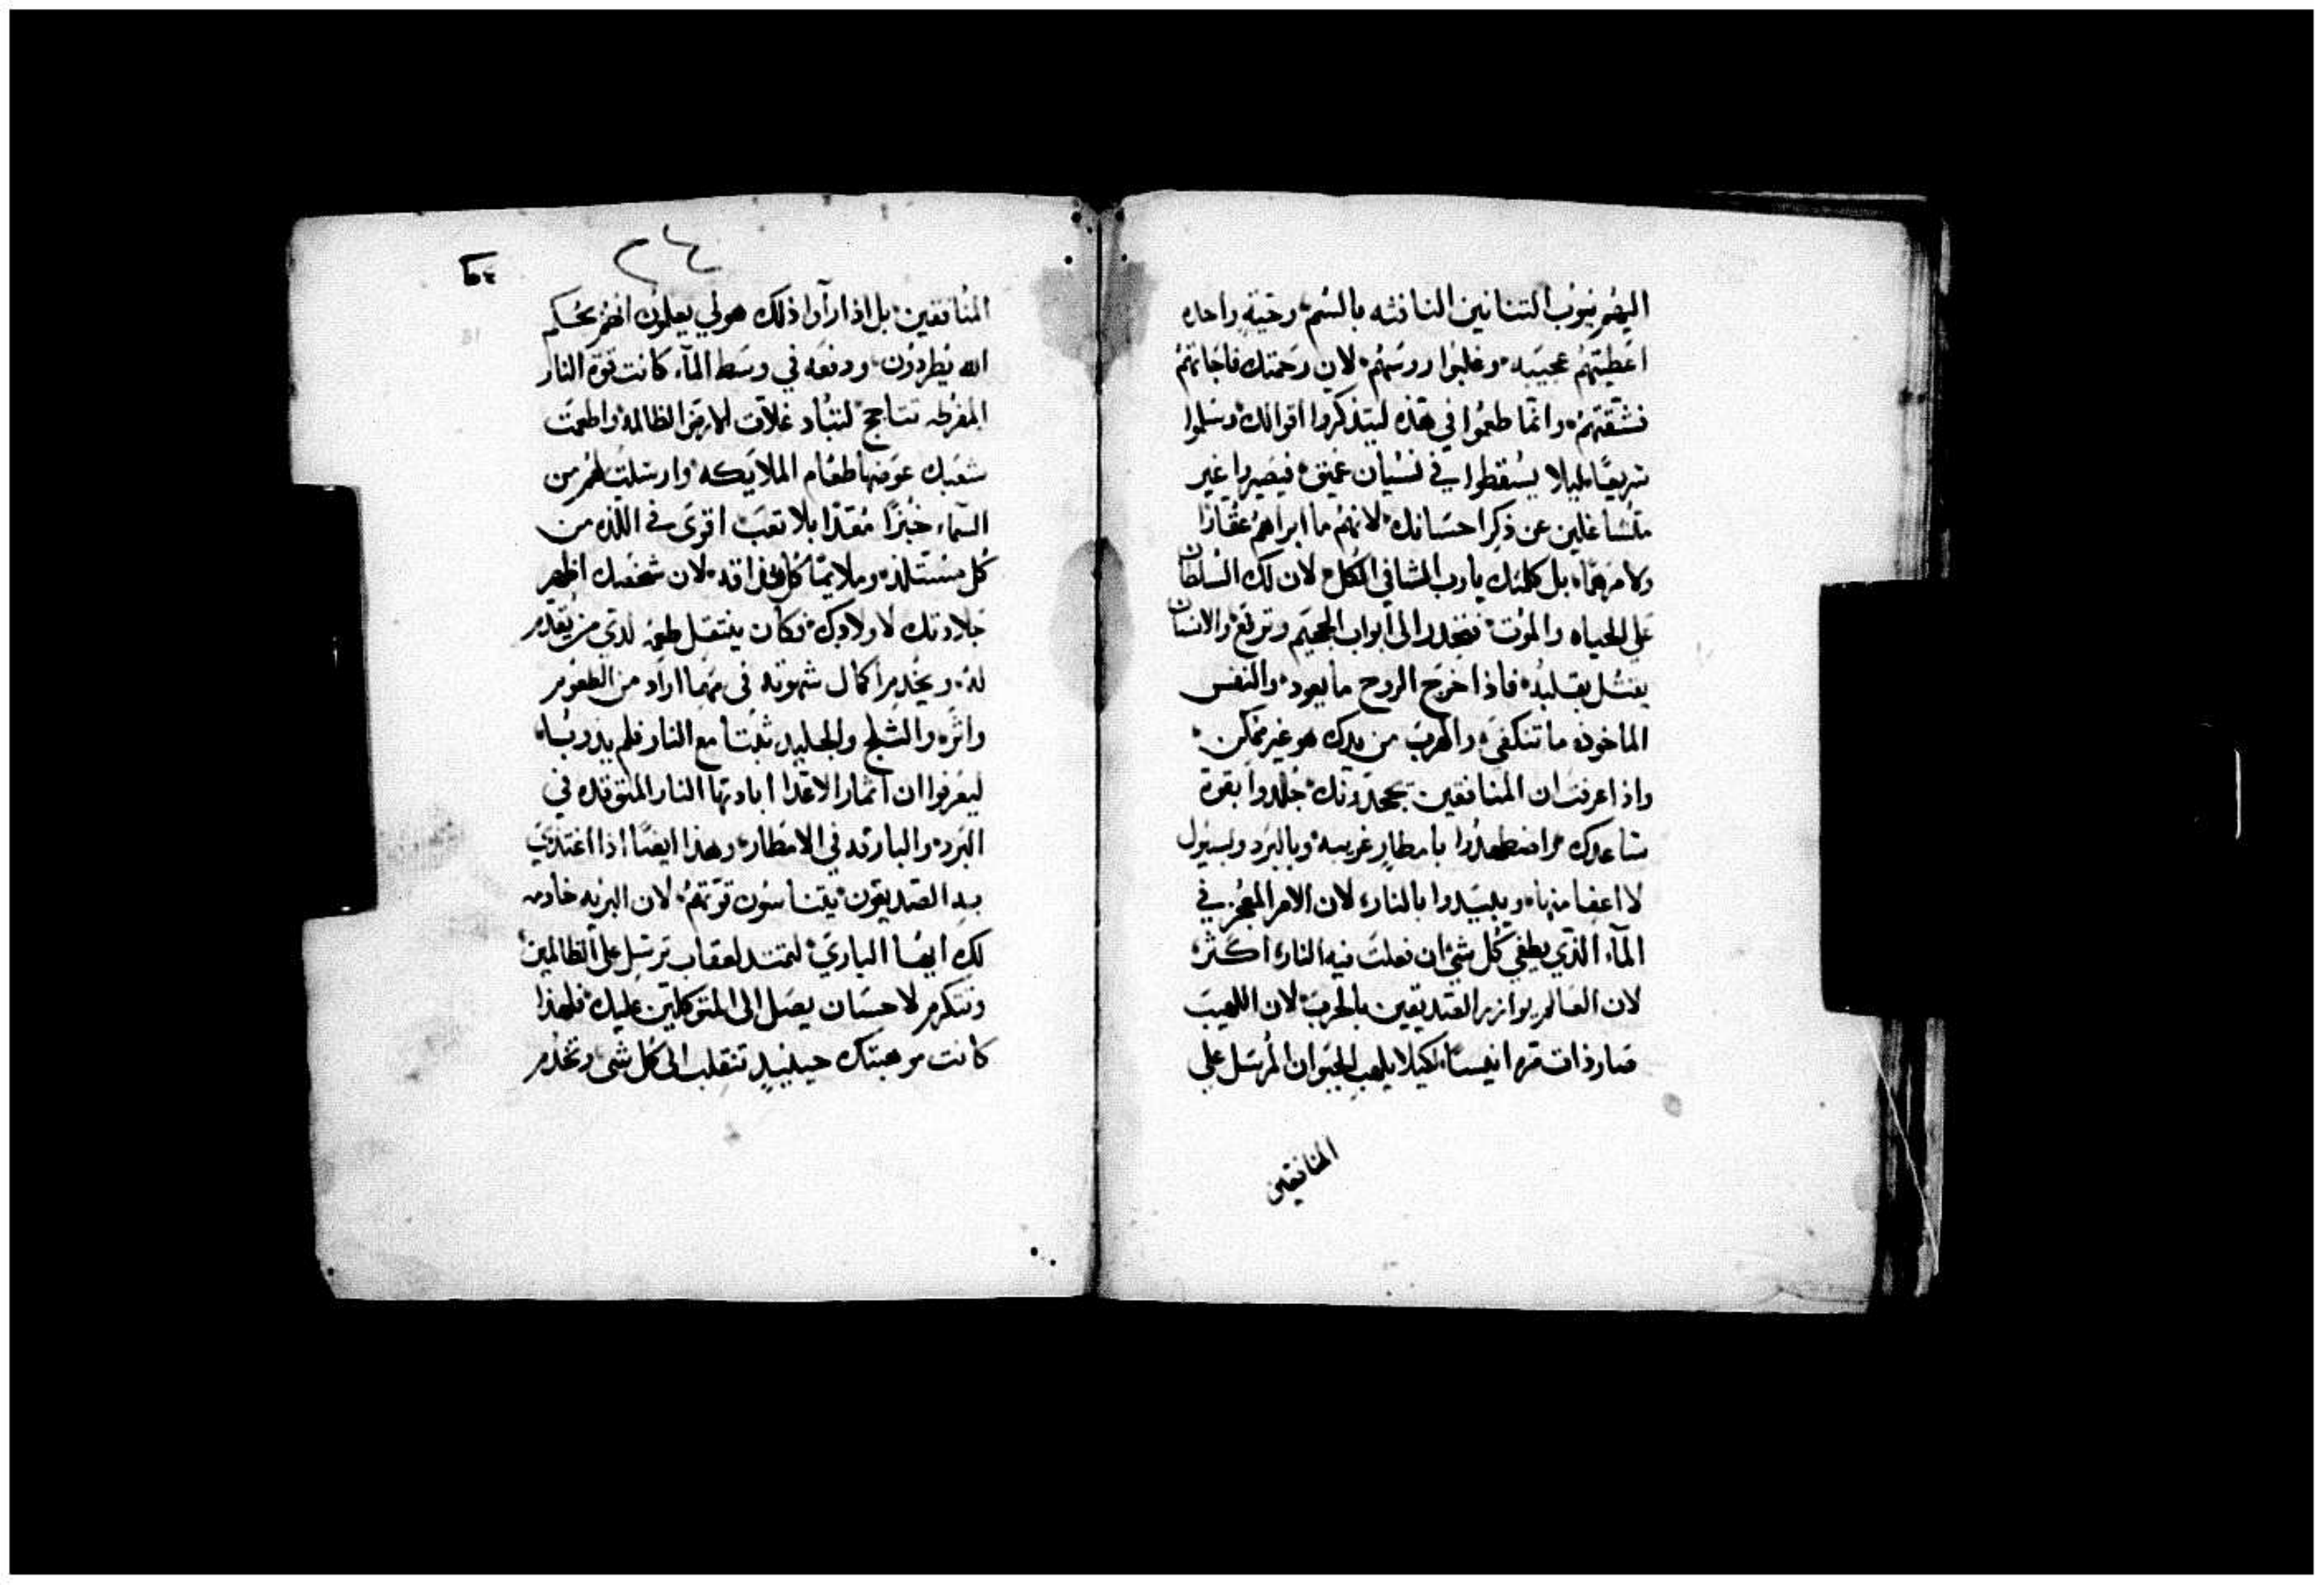 اليهم نيوب التنانين النافثه بالسم وحية واحده
اعطيتهم عجيبه وغلبوا روسهم لان رحمتك فاجاتهم
فشفتهم وانما طعموا في هذه ليتذكروا اقوالك وسلموا
سريعًا ليلا يسقطوا في نسيان عميق فيصيروا غير
متشاغلين عن ذكر احسانك لانهم ما ابراهم عقارًا
ولا مرهمًا بل كلمتك يارب الشافي الكل لان لك السلطان
على الحياه والموت فتحدر الى ابواب الجحيم وترفع والانسان
يقتل بقلبه فاذا خرج الروح ما يعود والنفس
الماخوذه ما تنكفي والهرب من يدك هو غير ممكن
واذا عرفت ان المنافقين بجحدونك جُلدوا بقوة
ساعدك واضطهدوا بامطار غريبه وبالبرد وبسيول
لا اعفا منها ويبيدوا بالنار لان الامر المعجز في
المآء الذي يطفي كل شي ان فعلت فيه النار اكثر
لان العالم يوازر الصديقين بالحرب لان اللهيب
صار ذات مره انيسًا لكيلا يلهب الحيوان المرسل على
المنافقين
٢٤
المنافقين بل اذا راوا ذلك هولي يعلمون انهم بحكم
الله يُطردون ودفعه في وسط المآء كانت قوة النار
المفرطه تتاجج لتباد غلات الارض الظالمه واطعمت
شعبك عوضها طعام الملايكه وارسلت لهم من
السمآء خبزًا مُعَدًا بلا تعب اقوى في اللذه من
كل مستلذ وملايمًا كل مذاقه لان شخصك اظهر
حلاوتك لاولادك فكان ينتقل طعمه لدي من يقدم
له ويخدم اكمال شهوته في مهما اراد من الطعوم
واثره والثلج والجليد ثبتا مع النار فلم يذوبا
ليعرفوا ان اثمار الاعدا ابادتها النار المتوقده في
البرد والبارقه في الامطار وهذا ايضًا اذا اغتذي
به الصديقون يتناسون قوتهم لان البريه خادمه
لك ايها الباري لتمتد لعقاب ترسل على الظالمين
وتتكرم لاحسان يصل الى المتوكلين عليك فلهذا
كانت موهبتك حينيذ تنقلب الى كل شي وتخدم